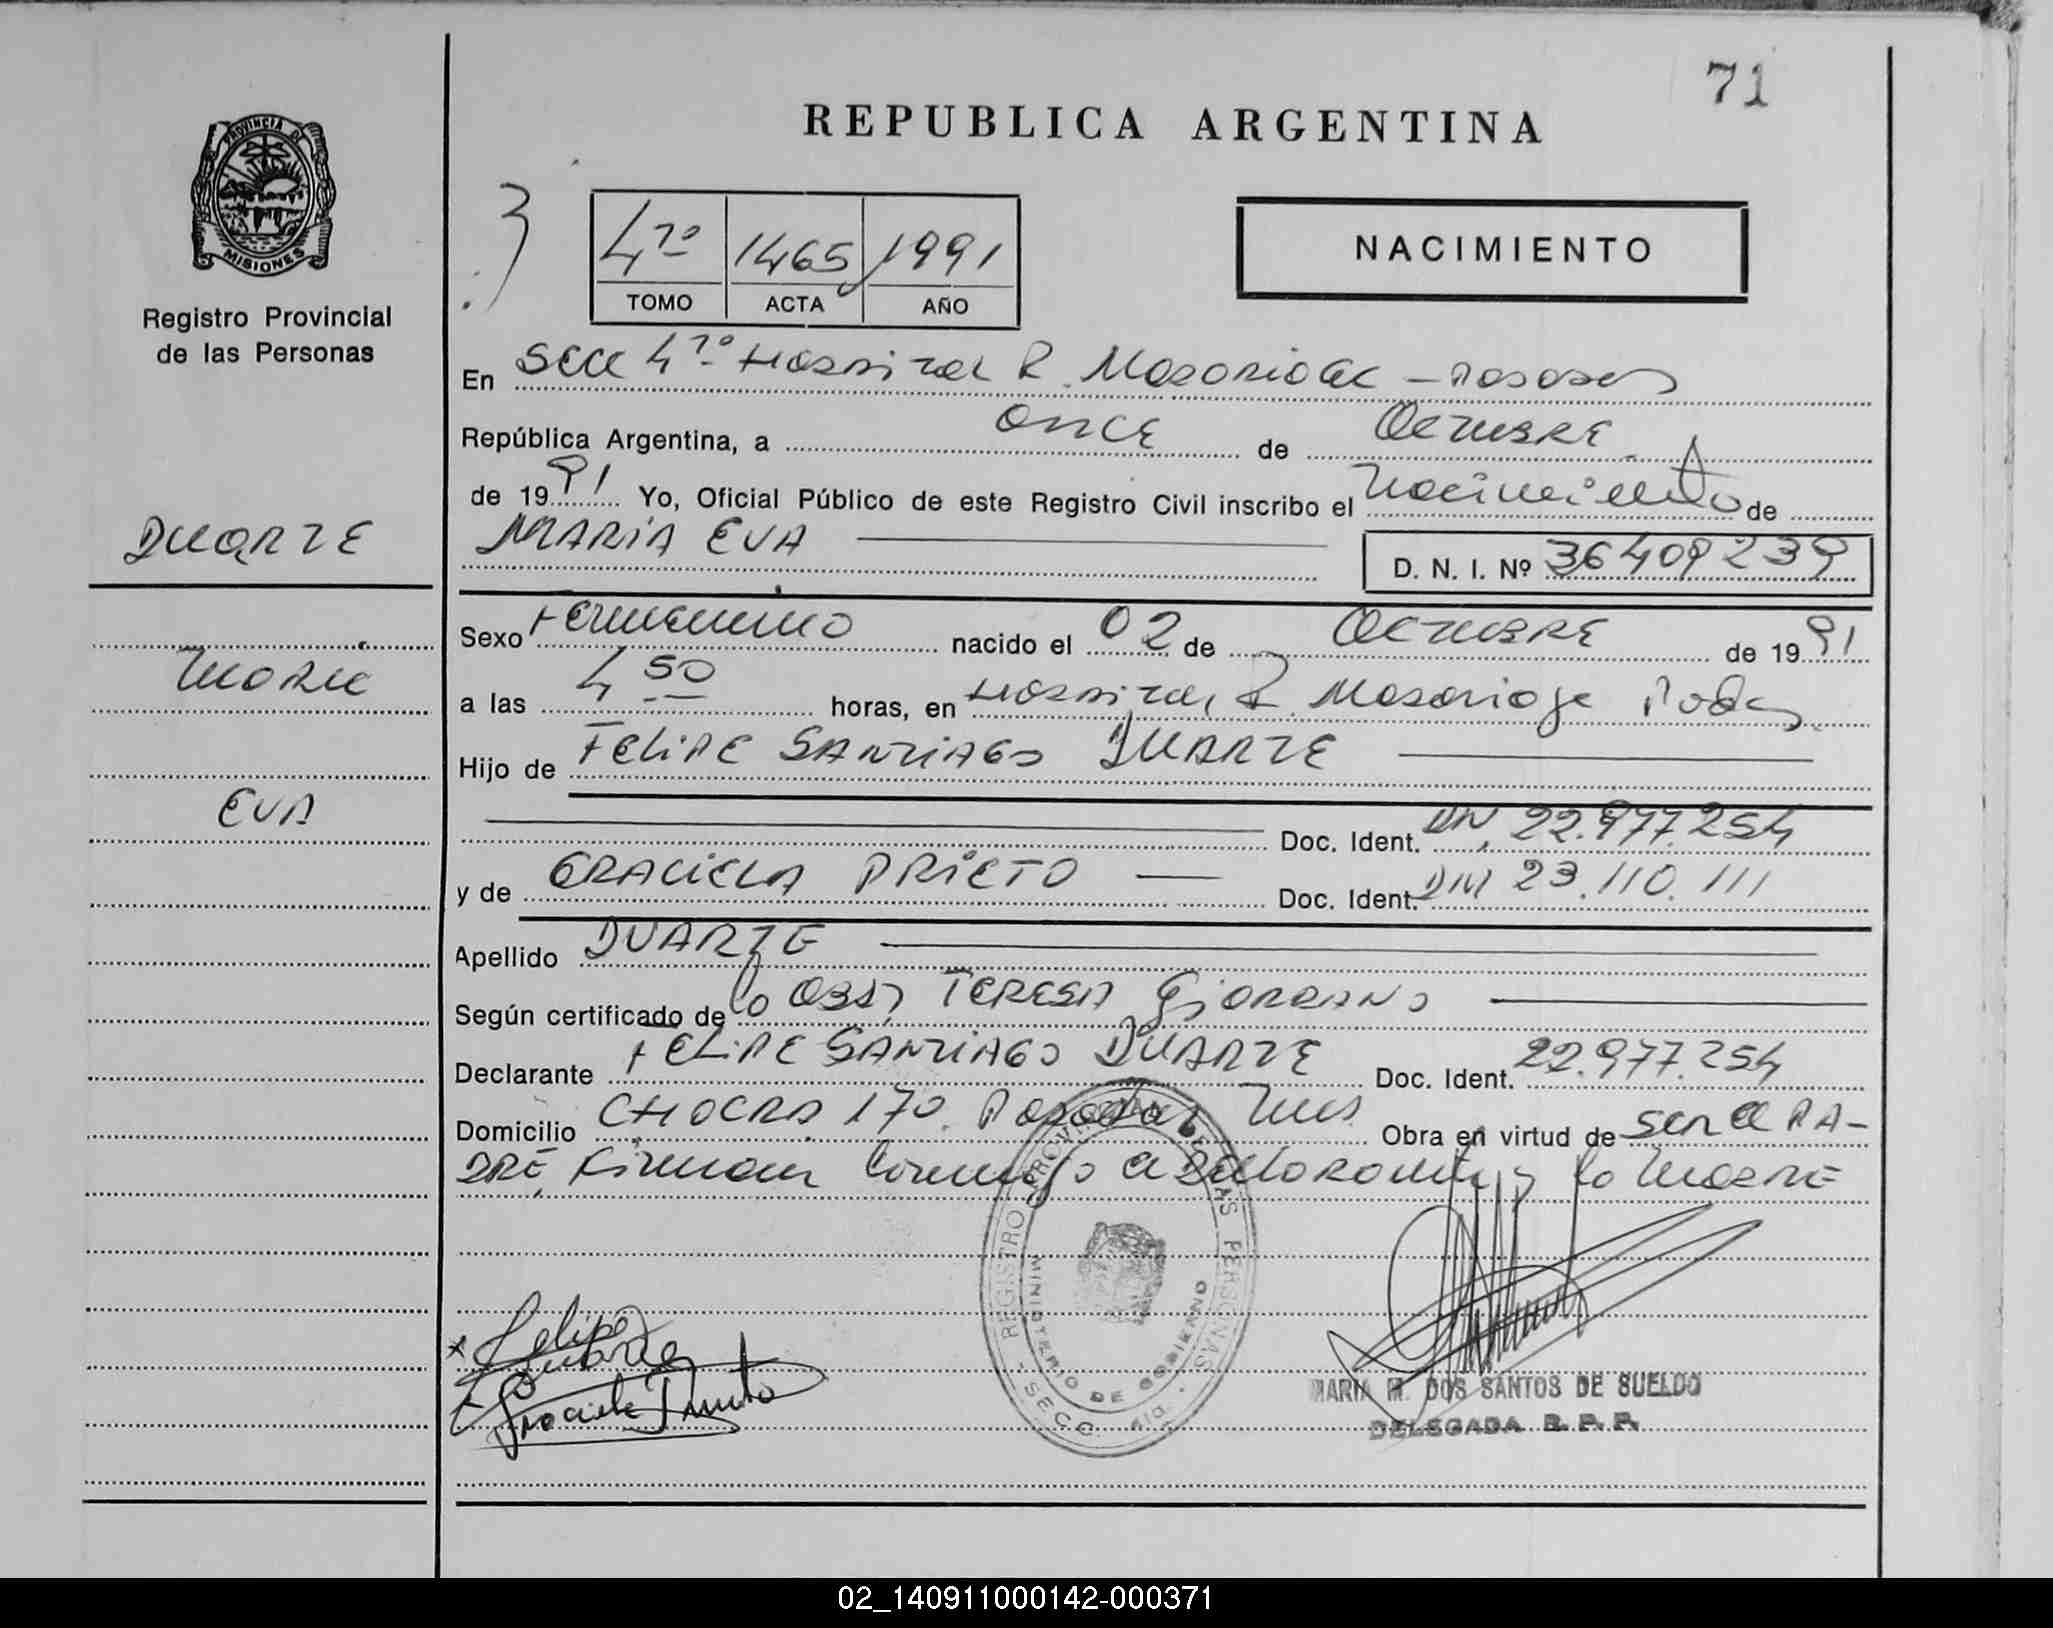 71
REPUBLICA ARGENTINA
PROVINCIA DE
MISIONES
Registro Provincial
de las Personas
4to 1465 1991
TOMO ACTA AÑO
NACIMIENTO
En Secc 4ta Hospital R. Madariaga - Posadas
República Argentina, a ONCE de OCTUBRE
de 1991 Yo, Oficial Público de este Registro Civil inscribo el Nacimiento de
DUARTE
MARIA EVA
D. N. I. Nº 36409239
Sexo Femenino nacido el 02 de OCTUBRE de 1991
MARIA
a las 4 50 horas, en Hospital R. Madariaga Podas
Hijo de FELIPE SANTIAGO DUARTE
EVA
Doc. Ident. DNI 22.977.254
y de GRACIELA PRIETO Doc. Ident. DNI 23.110.111
Apellido DUARTE
Según certificado de la Obst, TERESA GIORDANO
Declarante FELIPE SANTIAGO DUARTE Doc. Ident. 22.977.254
Domicilio CHACRA 170. Posadas Mnes Obra en virtud de ser el PA-
DRE, Firman conmigo el Declarante y la MADRE
REGISTRO PROVINCIAL DE LAS PERSONAS
MINISTERIO DE GOBIERNO
- SECC. 4ta. -
x Felipe
Duarte
x Graciela Prieto
MARIA M. DOS SANTOS DE SUELDO
DELEGADA R. P. P.
02_140911000142-000371